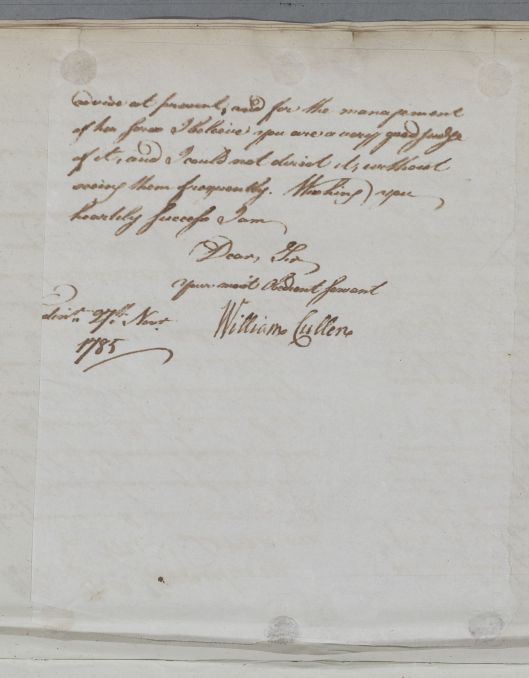 advise at present, and for the management
of her sores I believe you are a very good judge
of it, and I could not direct it, without
seeing them frequently. Wishing you
heartily success I am
Dear Sir
your most Obedient Servant
William Cullen
Edinr. 27th. Novr.
1785